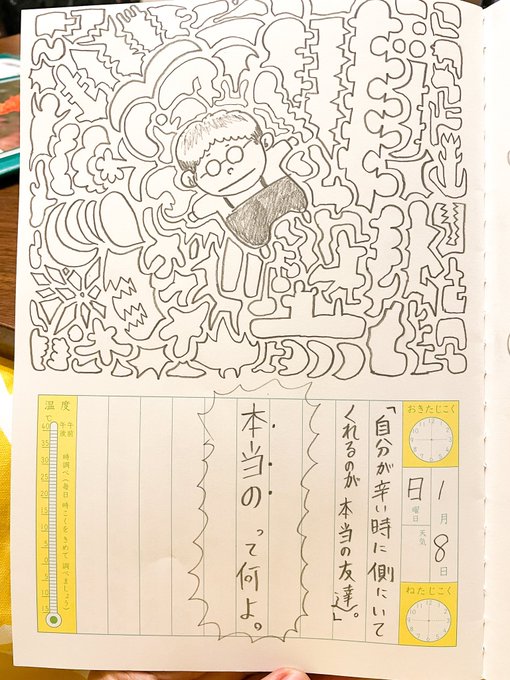 おきたじこく
1月8日
日曜日
天気
ねたじこく
「自分が辛い時に側にいて
くれるのが本当の友達。」
本当のって何よ。
温度
℃
午前
午後
時調べ(毎日 時こくを きめて 調べましょう)
40
35
30
25
20
15
10
5
0
5
10
15